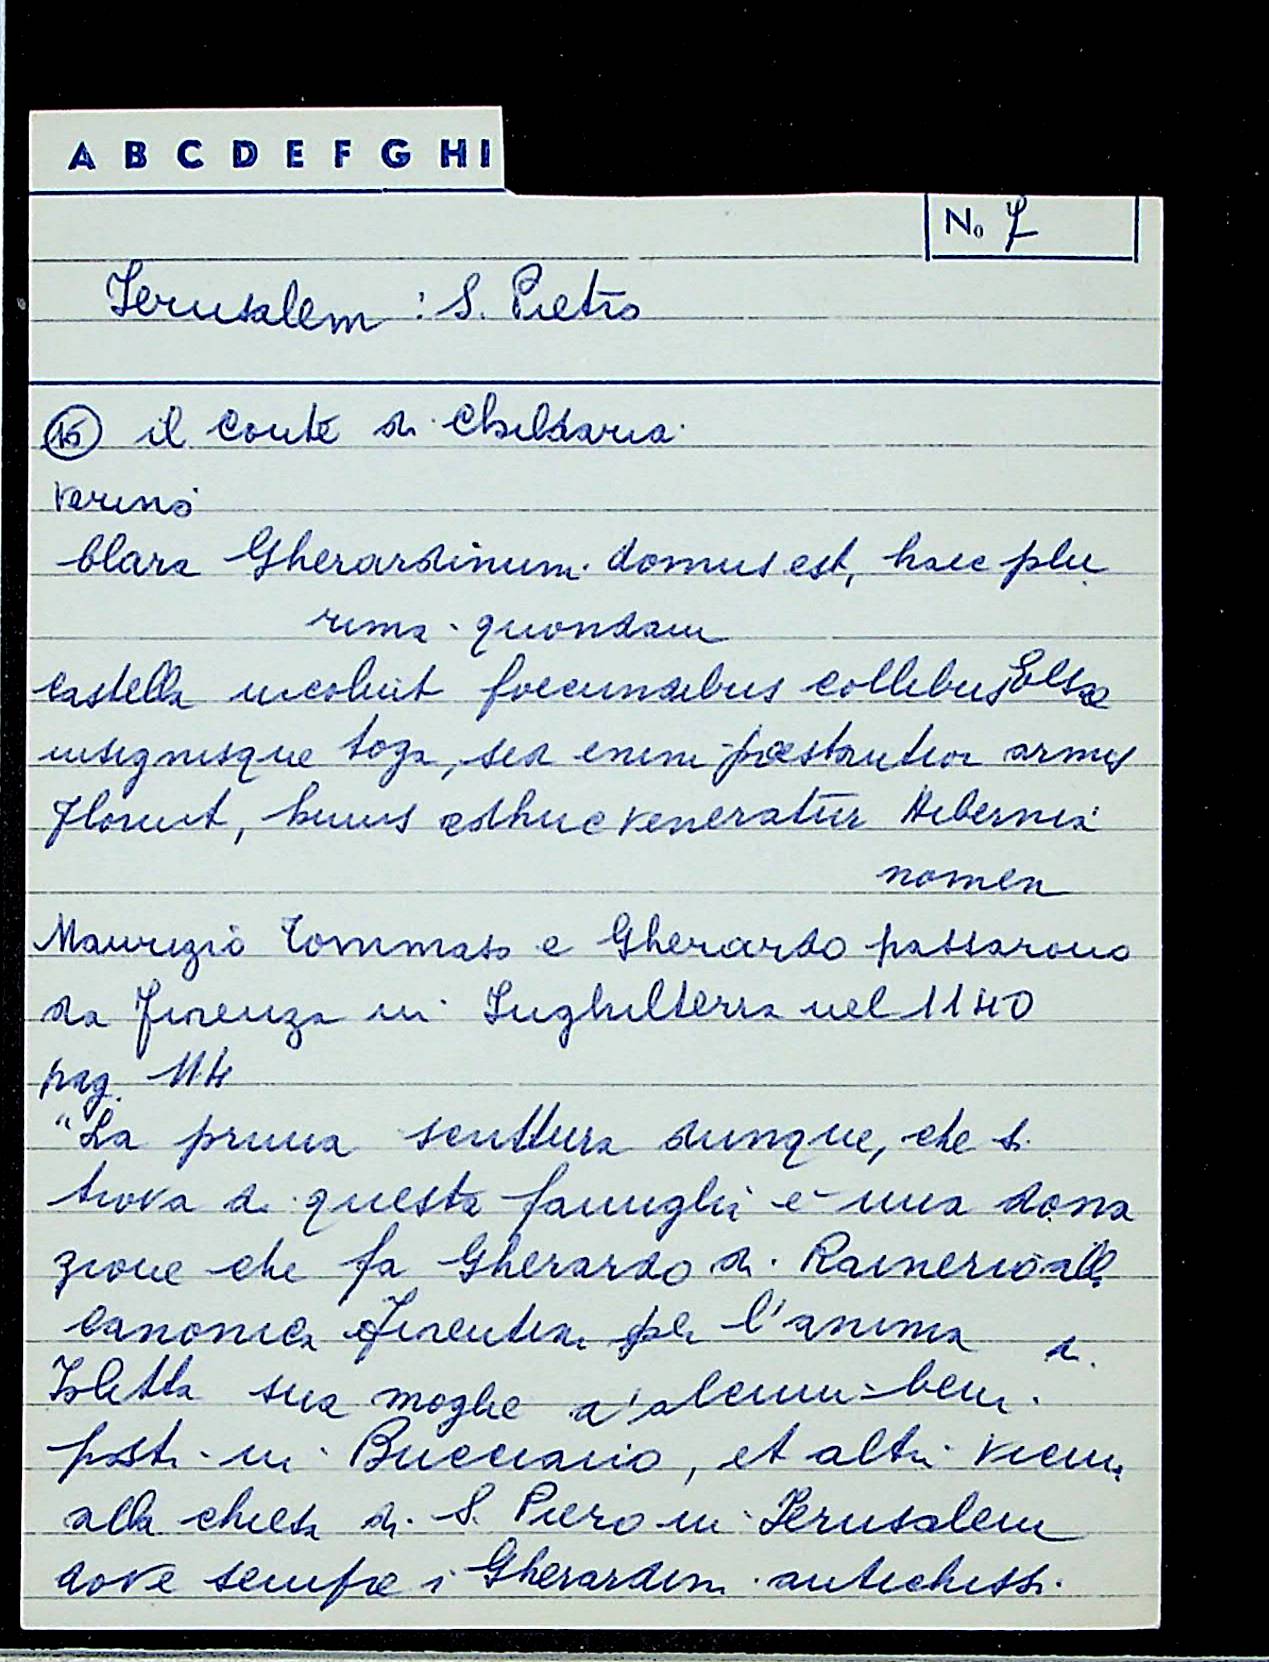 A B C D E F G H I
No 7
Jerusalem : S. Pietro
15 il conte di Childaria
Verino
Clara Gherardinum domus est, haec plu
rima quondam
castella incoluit foecundibus collibus Elsae
insignisque toga, sed enim praestantior armis
floruit, huius adhuc veneratur Hibernia
nomen
Maurizio Tommaso e Gherardo passarono
da Firenza in Inghilterra nel 1140
pag. 114
"La prima scrittura dunque, che si
trova di questa famiglia è una dona
zione che fa Gherardo di Rainerio alla
canonica fiorentina per l'anima di
Isletta sua moglie d'alcuni beni
posti in Bucciano, et altri vicini
alla chiesa di S. Piero in Jerusalem
dove sempre i Gherardini antichissi